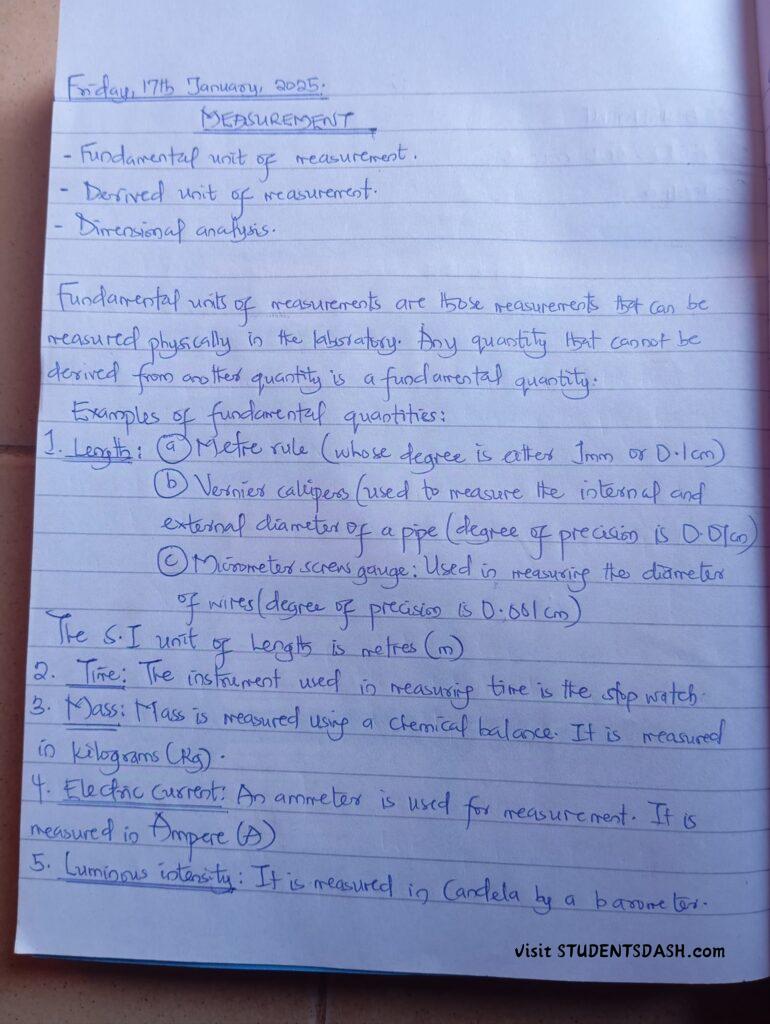 Friday, 17th January, 2025.
MEASUREMENT
- Fundamental unit of measurement.
- Derived unit of measurement.
- Dimensional analysis.
Fundamental units of measurements are those measurements that can be
measured physically in the laboratory. Any quantity that cannot be
derived from another quantity is a fundamental quantity.
Examples of fundamental quantities:
1. Length: (a) Metre rule (whose degree is either 1mm or 0.1cm)
(b) Vernier callipers (used to measure the internal and
external diameter of a pipe (degree of precision is 0.01cm)
(c) Micrometer screw gauge: Used in measuring the diameter
of wires (degree of precision is 0.001cm)
The S.I unit of Length is metres (m)
2. Time: The instrument used in measuring time is the stop watch.
3. Mass: Mass is measured using a chemical balance. It is measured
in kilograms (Kg).
4. Electric Current: An ammeter is used for measurement. It is
measured in Ampere (A)
5. Luminous intensity: It is measured in Candela by a barometer.
Visit STUDENTSDASH.com